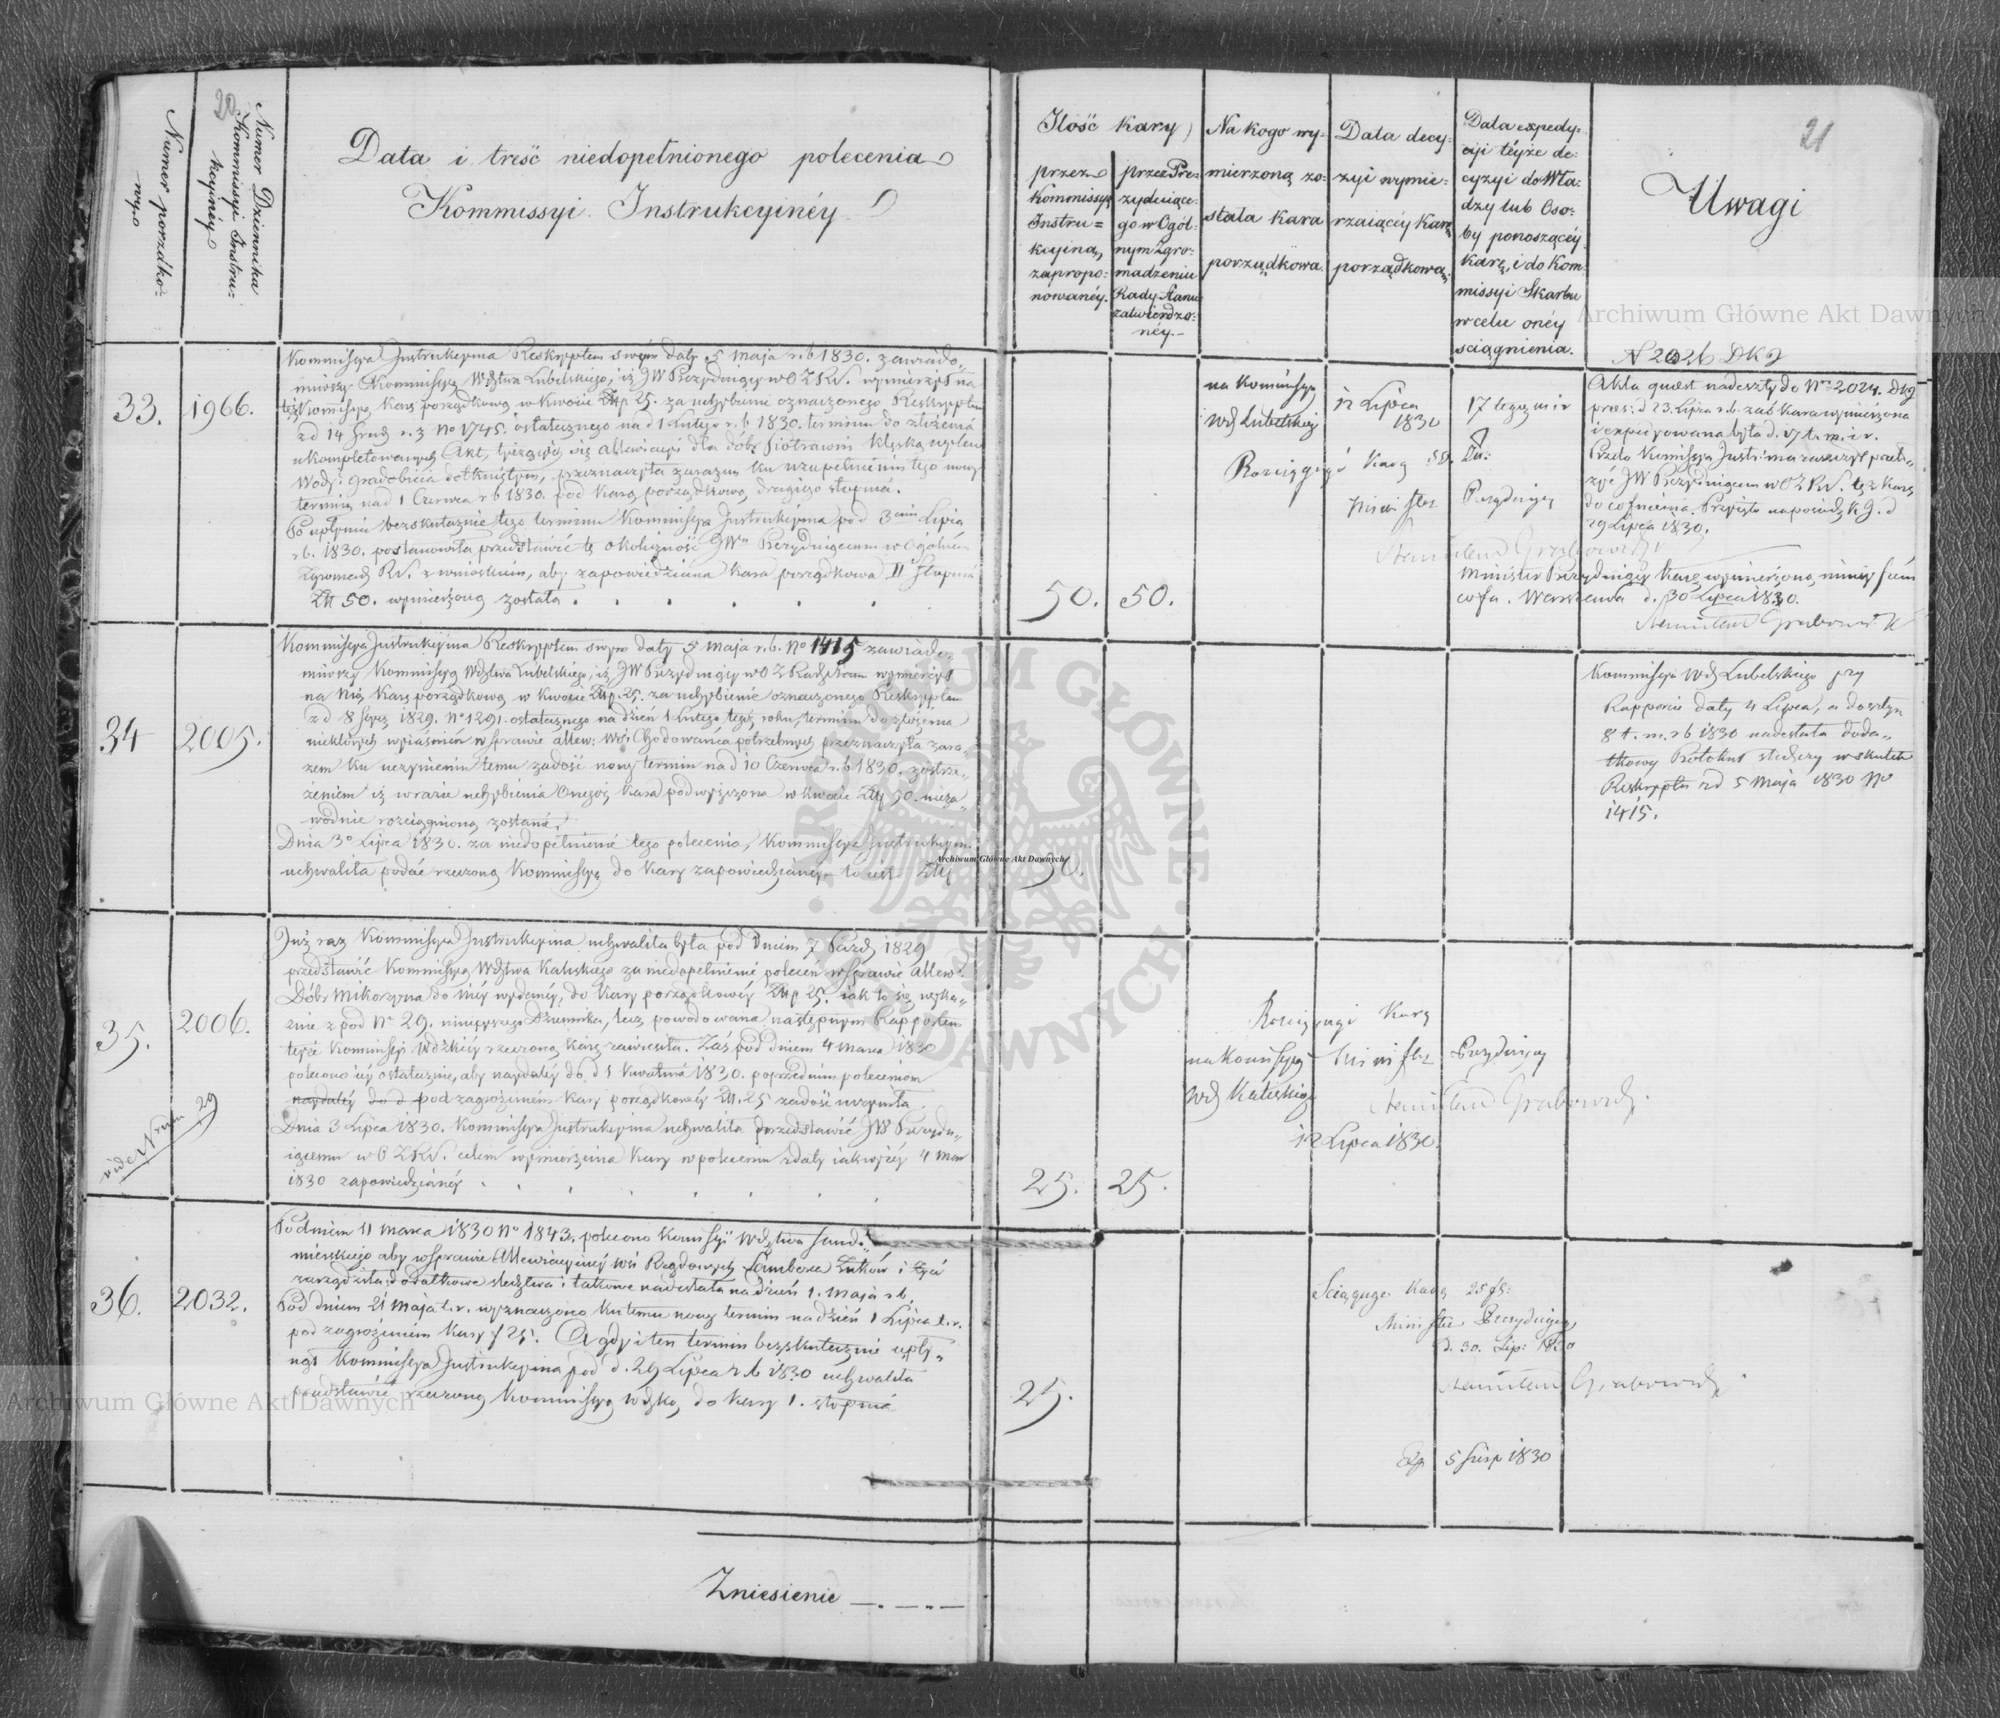 20
21
Numer porządko-
wy.
Numer Dziennika
Kommissyi Instru-
kcyinéy
Data i treść niedopełnionego polecenia
Kommissyi Instrukcyinéy
Ilość kary
przez
Kommissyą
Instru=
kcyiną
zapropo-
nowanéy.
przez Pre-
zyduiące-
go w Ogól-
nym Zgro-
madzeniu
Rady Stanu
zatwierdzo-
néy.
Na kogo wy-
mierzoną zo-
stała kara
porządkowa.
Data decy-
zyi wymie-
rzaiącéy karę
porządkową.
Data expedy-
cyi téyże de-
cyzyi do Wła-
dzy lub Oso-
by ponoszącéy
karę, i do Kom-
missyi Skarbu
w celu onéy
sciągnienia.
Uwagi
33.
1966.
Kommissya Instrukcyina Reskryptem swym daty 5 Maja r.b 1830. zawiado-
miwszy Kommissyą Wdztwa Lubelskiego, iż JW Prezyduiący w O Z RSt. wymierzył na
też Kommissyę karę porządkową w kwocie Złp 25. za uchybienie oznaczonego Reskryptem
z d 14 Grud r. z No 1745. ostatecznego na d 1 Lutego r.b 1830. terminu do złożenia
ukompletowanych Akt, tyczących się allewiacyi dla dóbr Piotrawin klęską wylewu
Wody i gradobicia dotkniętym, przeznaczyła zarazem ku uzupełnieniu tego nowy
termin na d 1 Czerwca r b 1830. pod karą porządkową drugiego stopnia.
Po upłyniu bezskutecznie tego terminu Kommissya Instrukcyina pod 3cim Lipca
r.b. 1830. postanowiła przedstawić tę okoliczność JWu Prezyduiącemu w Ogólném
Zgromadz RSt. z wnioskiem, aby zapowiedziana kara porządkowa II Stopnia
Złl 50. wymierzoną została
50.
50.
na Kommissyę
Wdz Lubelskiego
12 Lipca
1830
17 tegoż m i r
Rozciągnąć karę 50. Złt:
Minister Prezyduiący
Stanisław Grabowski
N 2026 DKJ
Akta quest nadeszły do No 2024. DKJ
praes: d 23. Lipca r.b. zaś kara wymierzona
i expedyowana była d. 17 t. m. i r.
Przeto Kommissya Instr: ma zaszczyt przeło-
żyć JW Prezyduiącemu w O Z RSt. też karę
do cofnienia. Przyięto na posiedz. K J. d
29 Lipca 1830.
Minister Prezyduiący karę wymierzoną niniey szém
cofa. Warszawa d. 30 Lipca 1830.
Stanisław Grabowski
34
2005.
Kommissya Instrukcyina Reskryptem swym daty 5 Maja r.b. No 1415 zawiado-
miwszy Kommissyą Wdztwa Lubelskiego, iż JW Prezyduiący w O Z Rady Stanu wymierzył
na Nią karę porządkową w kwocie Złp. 25. za uchybienie oznaczonego Reskryptem
z d 8 1829. No 1291. ostatecznego na dzień 1 Lutego tegoż roku, terminu do złożenia
niektórych wyiaśnień w sprawie allew: wsi Chodowańca potrzebnych przeznaczyła zara-
zem ku uczynieniu temu zadość nowy termin na d 10 Czerwca r.b 1830. zostrze-
żeniem iż w razie uchybienia Onegóż kara podwyższona w kwocie Złp 50. nieza-
wodnie rozciągnioną zostanie.
Dnia 3o Lipca 1830. za niedopełnienie tego polecenia, Kommissya Instrukcyin:
uchwaliła podać rzeczoną Kommissyą do kary zapowiedzianéy to iest Złp
50.
Kommissya Wdz Lubelskiego przy
Rapporcie daty 4 Lipca, a doszłym
8 t. m. r b 1830 nadesłała doda-
tkowy Protokuł śledczy w skutek
Reskryptu z d 5 Maja 1830 No
1415.
35.
2006.
vide Nrum 29
Już raz Kommissya Instrukcyina uchwaliła była pod dniem 7 Paźdz 1829
przedstawić Kommissyą Wdztwa Kaliskiego za niedopełnienie poleceń w sprawie allew:
Dóbr Mikorzyna do Niéy wydanéy, do kary porządkowéy Złp 25. iak to się wyka-
znie z pod No 29. ninieyszego Dziennika, lecz powodowana następnym Rapportem
teyże Kommissyi Wdzkiéy rzeczoną karę zawiesiła. Zaś pod dniem 4 Marca 1830
polecono iéy ostatecznie, aby naydaléy do d 1 Kwietnia 1830. poprzednim poleceniom
naydaléy do d pod zagrożeniem kary porządkowéy Złl. 25 zadość uczyniła.
Dnia 3 Lipca 1830. Kommissya Instrukcyina uchwaliła przedstawić JW Prezydu-
iącemu w O Z RSt. celem wymierzenia kary w poleceniu z daty iak wyżéy 4 Mar
1830 zapowiedzianéy
25.
25.
Rozciągnąć karę
na Kommissyą
Wdz Kaliskiego
Minister Prezyduiący
Stanisław Grabowski
12 Lipca 1830.
36.
2032.
Pod dniem 11 Marca 1830 No 1843, polecono Kommissyi Wdztwa Sando-
mierskiego aby w sprawie Allewiacyinéy wsi Rządowych
zarządziła dodatkowe śledztwa i takowe nadesłała na dzień 1. Maja r b.
Pod dniem 21 Maja t.r. wyznaczono ku temu nowy termin na dzień 1 Lipca t.r.
pod zagrożeniem kary f 25. A gdy i ten termin bezskutecznie upły-
nął Kommissya Instrukcyina pod d. 29 Lipca r.b 1830 uchwaliła
przedstawić rzeczoną Kommissyą Wdzką do kary 1. stopnia
25.
Sciągnąć karę 25 fl:
Minister Prezyduiący
d. 30. Lip: 1830
Stanisław Grabowski
Exp 5 Sierp 1830
Zniesienie
Archiwum Główne Akt Dawnych
Archiwum Główne Akt Dawnych
Archiwum Główne Akt Dawnych
ARCHIWUM GŁÓWNE AKT DAWNYCH